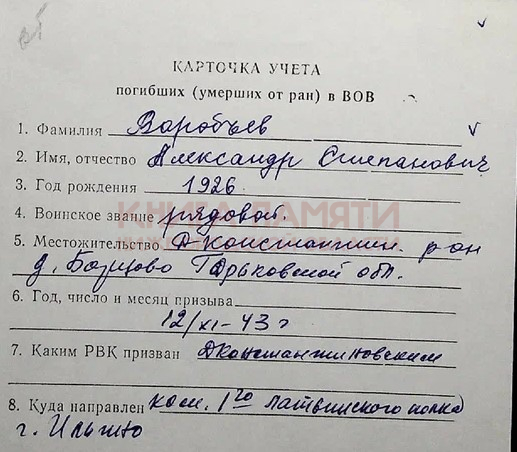 КАРТОЧКА УЧЕТА
погибших (умерших от ран) в ВОВ
1. Фамилия Воробьев
2. Имя, отчество Александр Степанович
3. Год рождения 1926
КНИГА ПАМЯТИ
4. Воинское звание рядовой.
5. Местожительство Дконстантин. р-он
д. Борцово Горьковской обл.
6. Год, число и месяц призыва
12/XI-43 г
7. Каким РВК призван Дконстантиновским
8. Куда направлен ком. 1го латвийского полка
г. Ильино